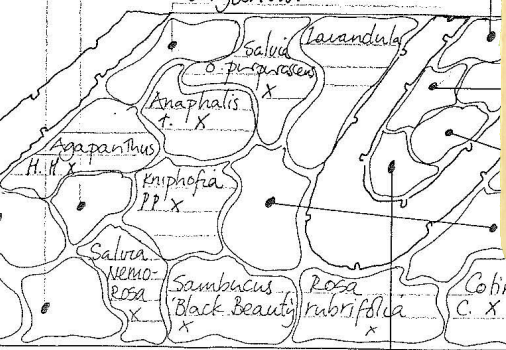 Salvia
o. purpurascens
X
Lavandula
Anaphalis
t. X
Agapanthus
H.H X
Kniphofia
PP X
Salvia
Nemo-
Rosa
X
Sambucus
'Black Beauty'
X
Rosa
rubrifolia
x
C. X